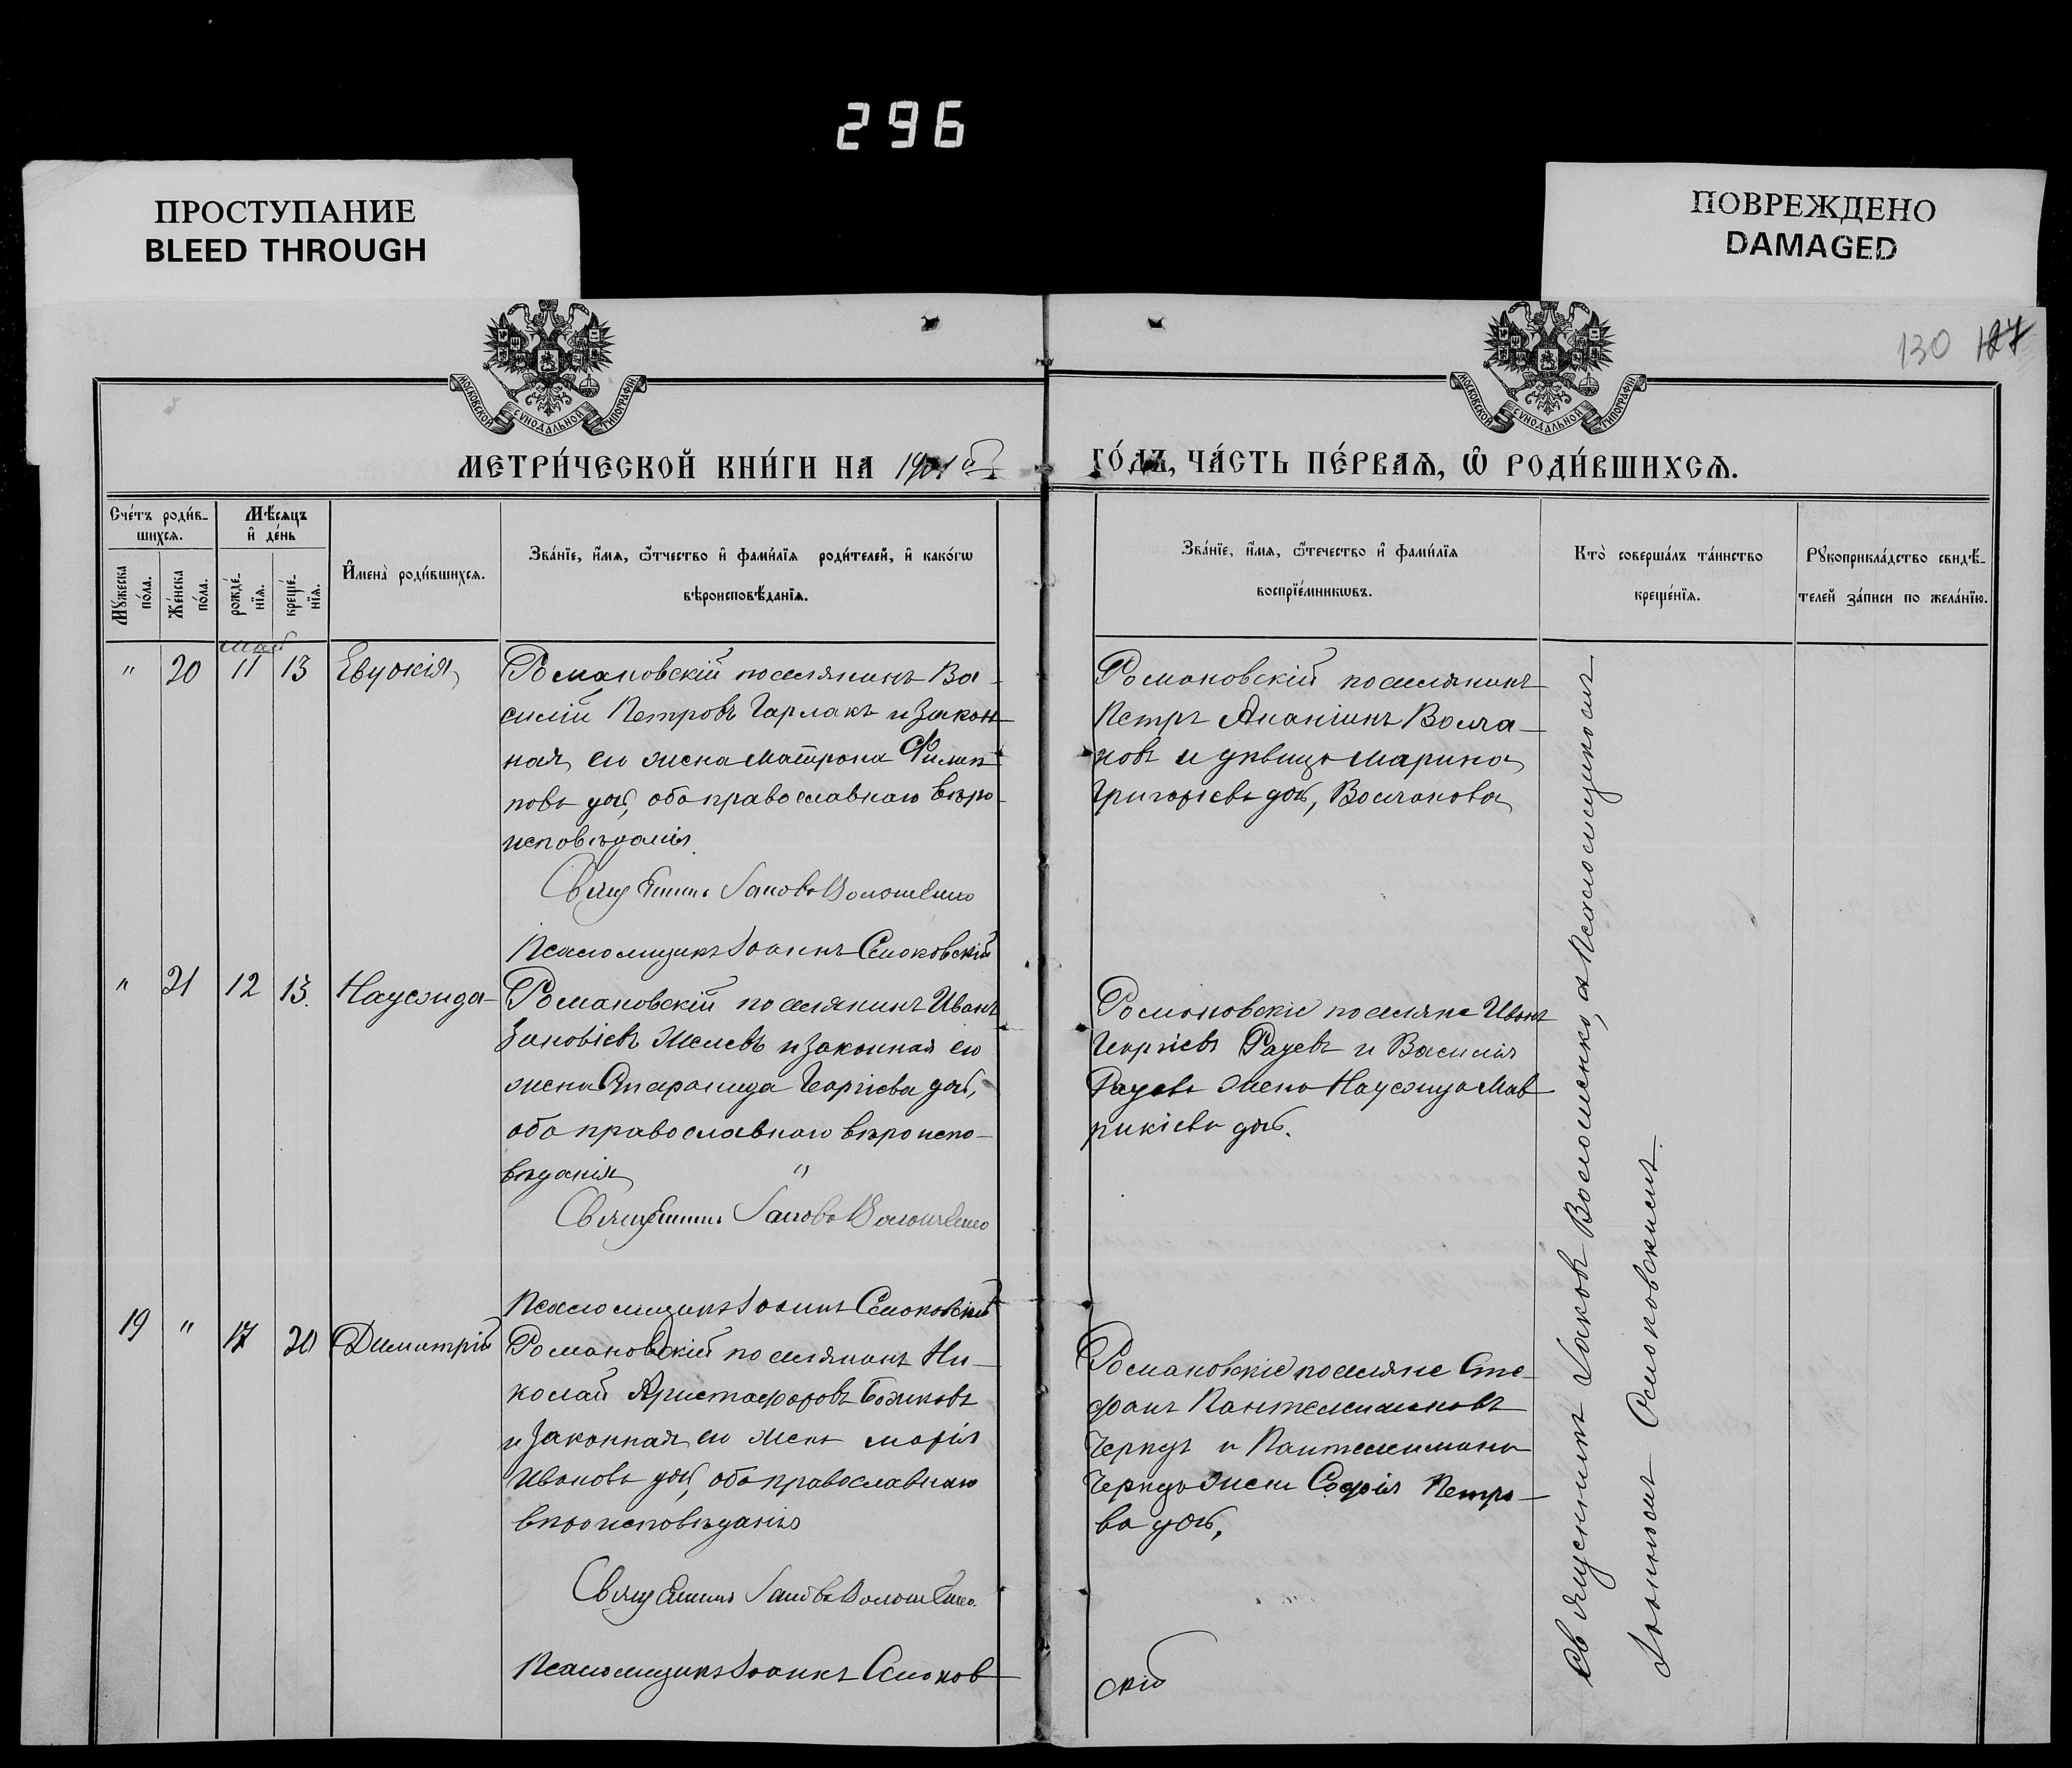 296
ПРОСТУПАНИЕ
BLEED THROUGH
ПОВРЕЖДЕНО
DAMAGED
130 127
МОСКОВСКОЙ СѴНОДАЛЬНОЙ ТИПОГРАФІИ
МОСКОВСКОЙ СѴНОДАЛЬНОЙ ТИПОГРАФІИ
МЕТРИ́ЧЕСКОЙ КНИ́ГИ НА 1901й
ГО́ДЪ, ЧА́СТЬ ПЕ́РВАѦ, Ѡ РОДИ́ВШИХСѦ.
Сче́тъ роди́в-
шихсѧ.
Мꙋ́жеска
по́ла.
Же́нска
по́ла.
Мѣ́сѧцъ
и҆ де́нь
рожде́-
нїѧ.
креще́-
нїѧ.
И҆мена̀ роди́вшихсѧ.
Зва́нїе, и҆́мѧ, ѻ҆́тчество и҆ фами́лїѧ роди́телей, и҆ како́гѡ
вѣроисповѣ́данїѧ.
Зва́нїе, и҆́мѧ, ѻ҆́течество и҆ фами́лїѧ
воспрїе́мникѡвъ.
Кто̀ соверша́лъ та́инство
креще́нїѧ.
Рꙋкоприкла́дство свидѣ́-
телей за́писи по жела́нїю.
май
" 20 11 13 Евдокія
Романовскій поселянинъ Ва-
силій Петровъ Гарлакъ и закон-
ная его жена Матрона Филип-
пова дочь, оба православнаго вѣро-
исповѣданія.
Священникъ Іаковъ Волошенко
Псаломщикъ Іоаннъ Смоковскій
Романовскій поселянинъ
Петръ Ананіинъ Волча-
новъ и дѣвица Марина
Григорьева дочь, Волчанова
" 21 12 13. Надежда
Романовскій поселянинъ Иванъ
Зиновіевъ Желевъ и законная его
жена Георгіева дочь,
оба православнаго вѣроиспо-
вѣданія "
Священникъ Іаковъ Волошенко
Псаломщикъ Іоаннъ Смоковскій
Романовскіе поселяне Иванъ
Георгіевъ Радевъ и Василія
Радева жена Надежда Мав-
рикіева дочь.
19 " 17 20 Димитрій
Романовскій поселянинъ Ни-
колай Христофоровъ Божковъ
и законная его жена Марія
Иванова дочь, оба православнаго
вѣроисповѣданія
Священникъ Іаковъ Волошенко.
Псаломщикъ Іоаннъ Смоков-
скій
Романовскіе поселяне Сте-
фанъ Пантелеимоновъ
Чернедъ и Пантелеимона
жена Софія Петро-
ва дочь,
Священникъ Іаковъ Волошенко, съ Псаломщикомъ
Іоанномъ Смоковскимъ.